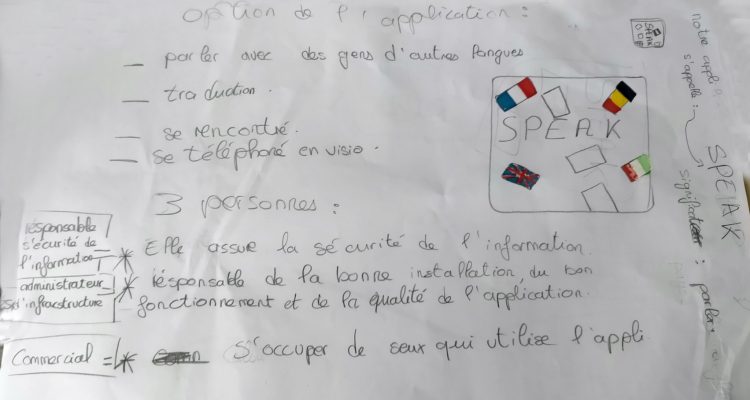 option de l'application :
_ parler avec des gens d'autres langues
_ traduction.
_ se rencontré.
_ se téléphoné en visio.
SPEAK
SPEAK
notre appli
s'appelle :
SPEAK
signifiant : parler
3 personnes :
résponsable
sécurité de
l'information
* Elle assue la sécurité de l'information.
administrateur
d'infrastructure
* résponsable de la bonne installation, du bon
fonctionnement et de la qualité de l'application.
Commercial = * s'occuper de seux qui utilise l'appli.